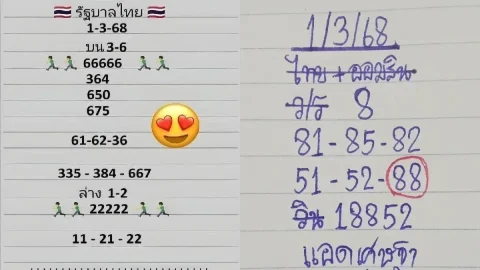 รัฐบาลไทย
1-3-68
บน 3-6
66666
364
650
675
61-62-36
335 - 384 - 667
ล่าง 1-2
22222
11 - 21 - 22
1/3/68
ไทย + ออมสิน
ว/ร 8
81 - 85 - 82
51 - 52 - 88
วิน 18852